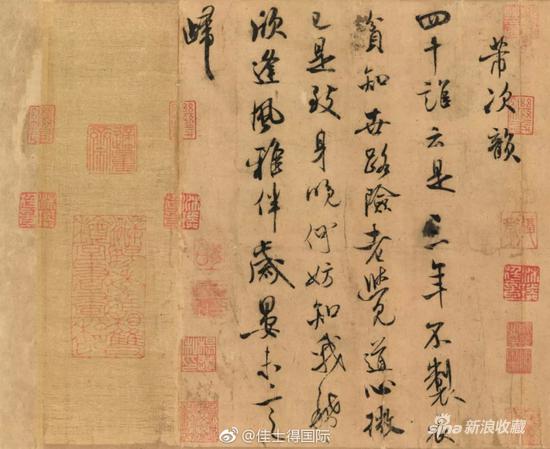 芾次韻
四十誰云是三年不製衣
貧知世路險老覺道心微
已是致身晚何妨知我稀
欣逢風雅伴歲晏未言
歸
@佳士得国际
sina 新浪收藏